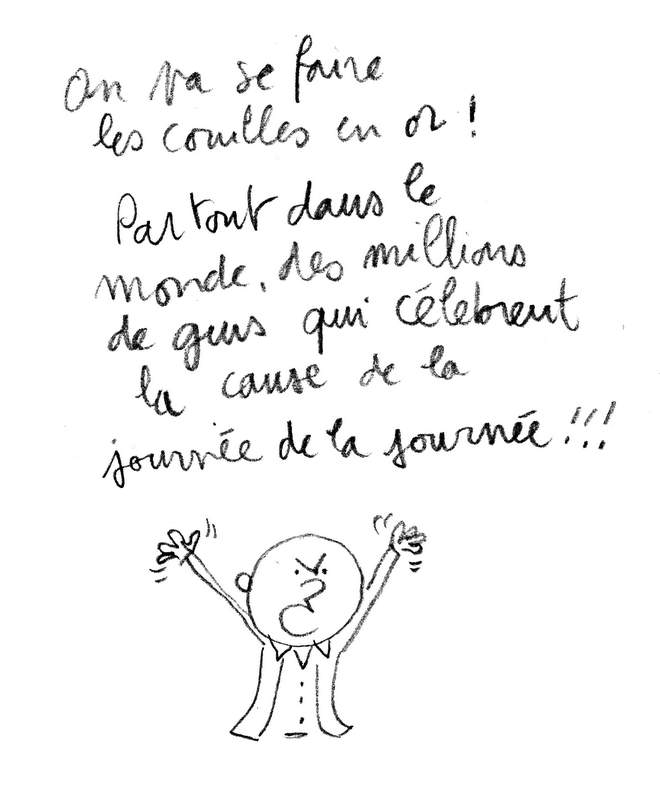 On va se faire
les couilles en or !
Partout dans le
monde, des millions
de gens qui célèbrent
la cause de la
journée de la journée !!!